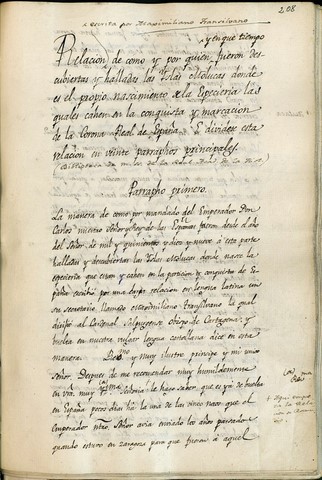 208
escrita por Maximiliano Transilvano
y en que tiempo
Relacion de como y por quien fueron des-
cubiertas y halladas las Yslas Molucas donde
es el propio nascimiento de la Especieria las
quales cahen en la conquista y marcacion
de la Corona Real de España. E dividese esta
relacion en veinte parraphos principales.
(Biblioteca de
Parrapho primero.
La manera de como por mandado del Emperador Don
Carlos nuestro Señor y Rey de las Españas fueron desde el año
del Señor de mil y quinientos y diez y nueve a esta parte
halladas y descubiertas las Yslas Molucas donde nasce la
especieria que estan y cahen en la particion y conquista de Es-
paña escribio por una larga relacion en lengua latina un
su secretario llamado Maximiliano Transilvano la qual
dirijio al Cardenal Salzpurgense Obispo de Cartagena: y
buelta en nuestra vulgar lengua castellana dice en esta
manera. y muy ilustre principe y mi unico
Señor. Despues de me recomendar muy humildemente
en vra. muy Señoria: le hago saber que es ya de buelta
en España pocos dias ha la una de las cinco naos que el
Emperador ntro. Señor avia enviado los años passados
quando estuvo en zaragoza para que fuesen a aquel